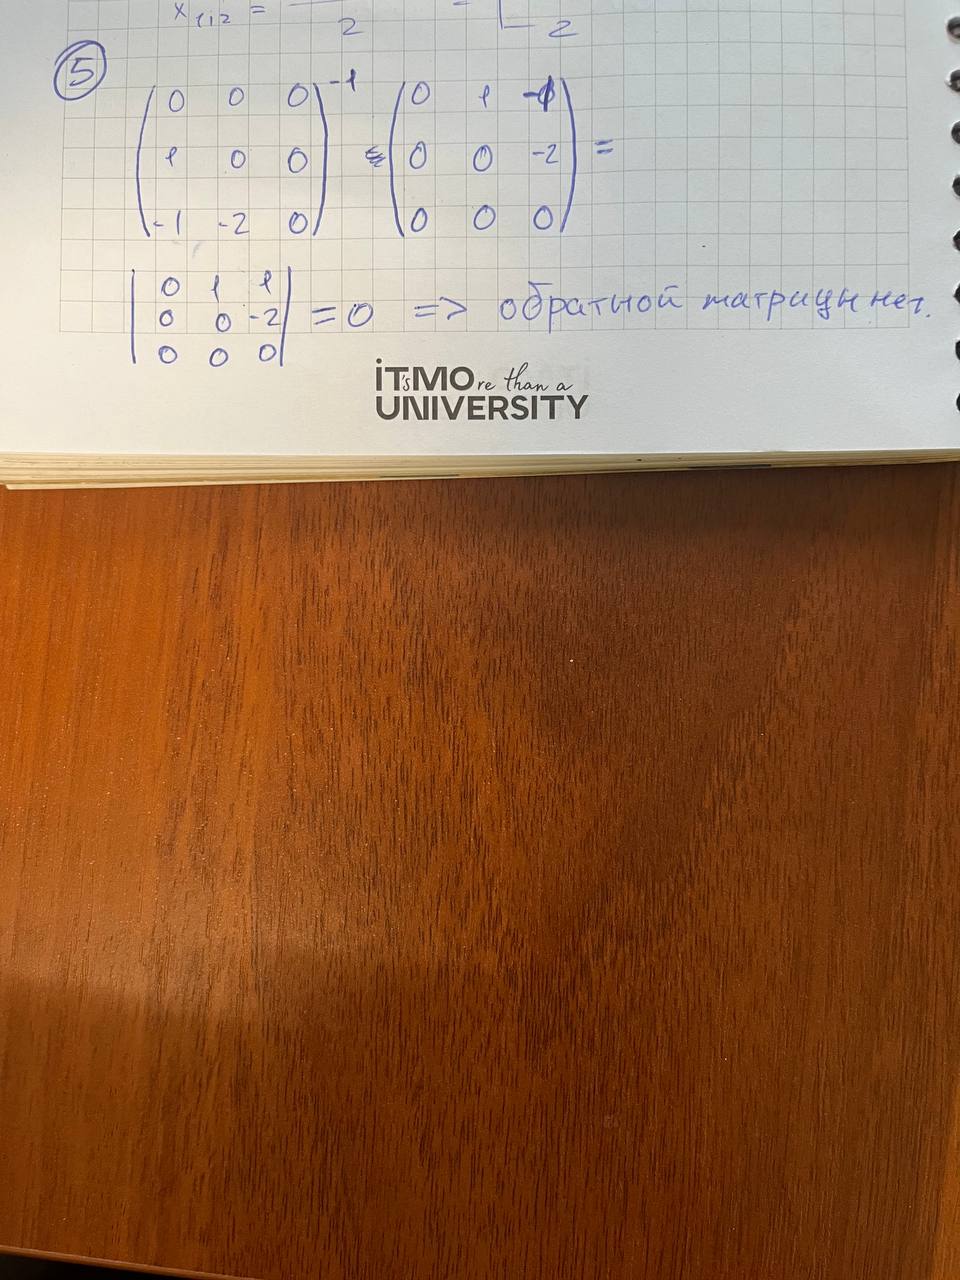 x₁,₂ = 2 = 2
5
( 0 0 0 )⁻¹ ( 0 1 )
( 1 0 0 ) ( 0 0 -2 ) =
( -1 -2 0 ) ( 0 0 0 )
| 0 1 1 |
| 0 0 -2 | = 0 => обратной матрицы нет.
| 0 0 0 |
iT'sMOre than a
UNIVERSITY